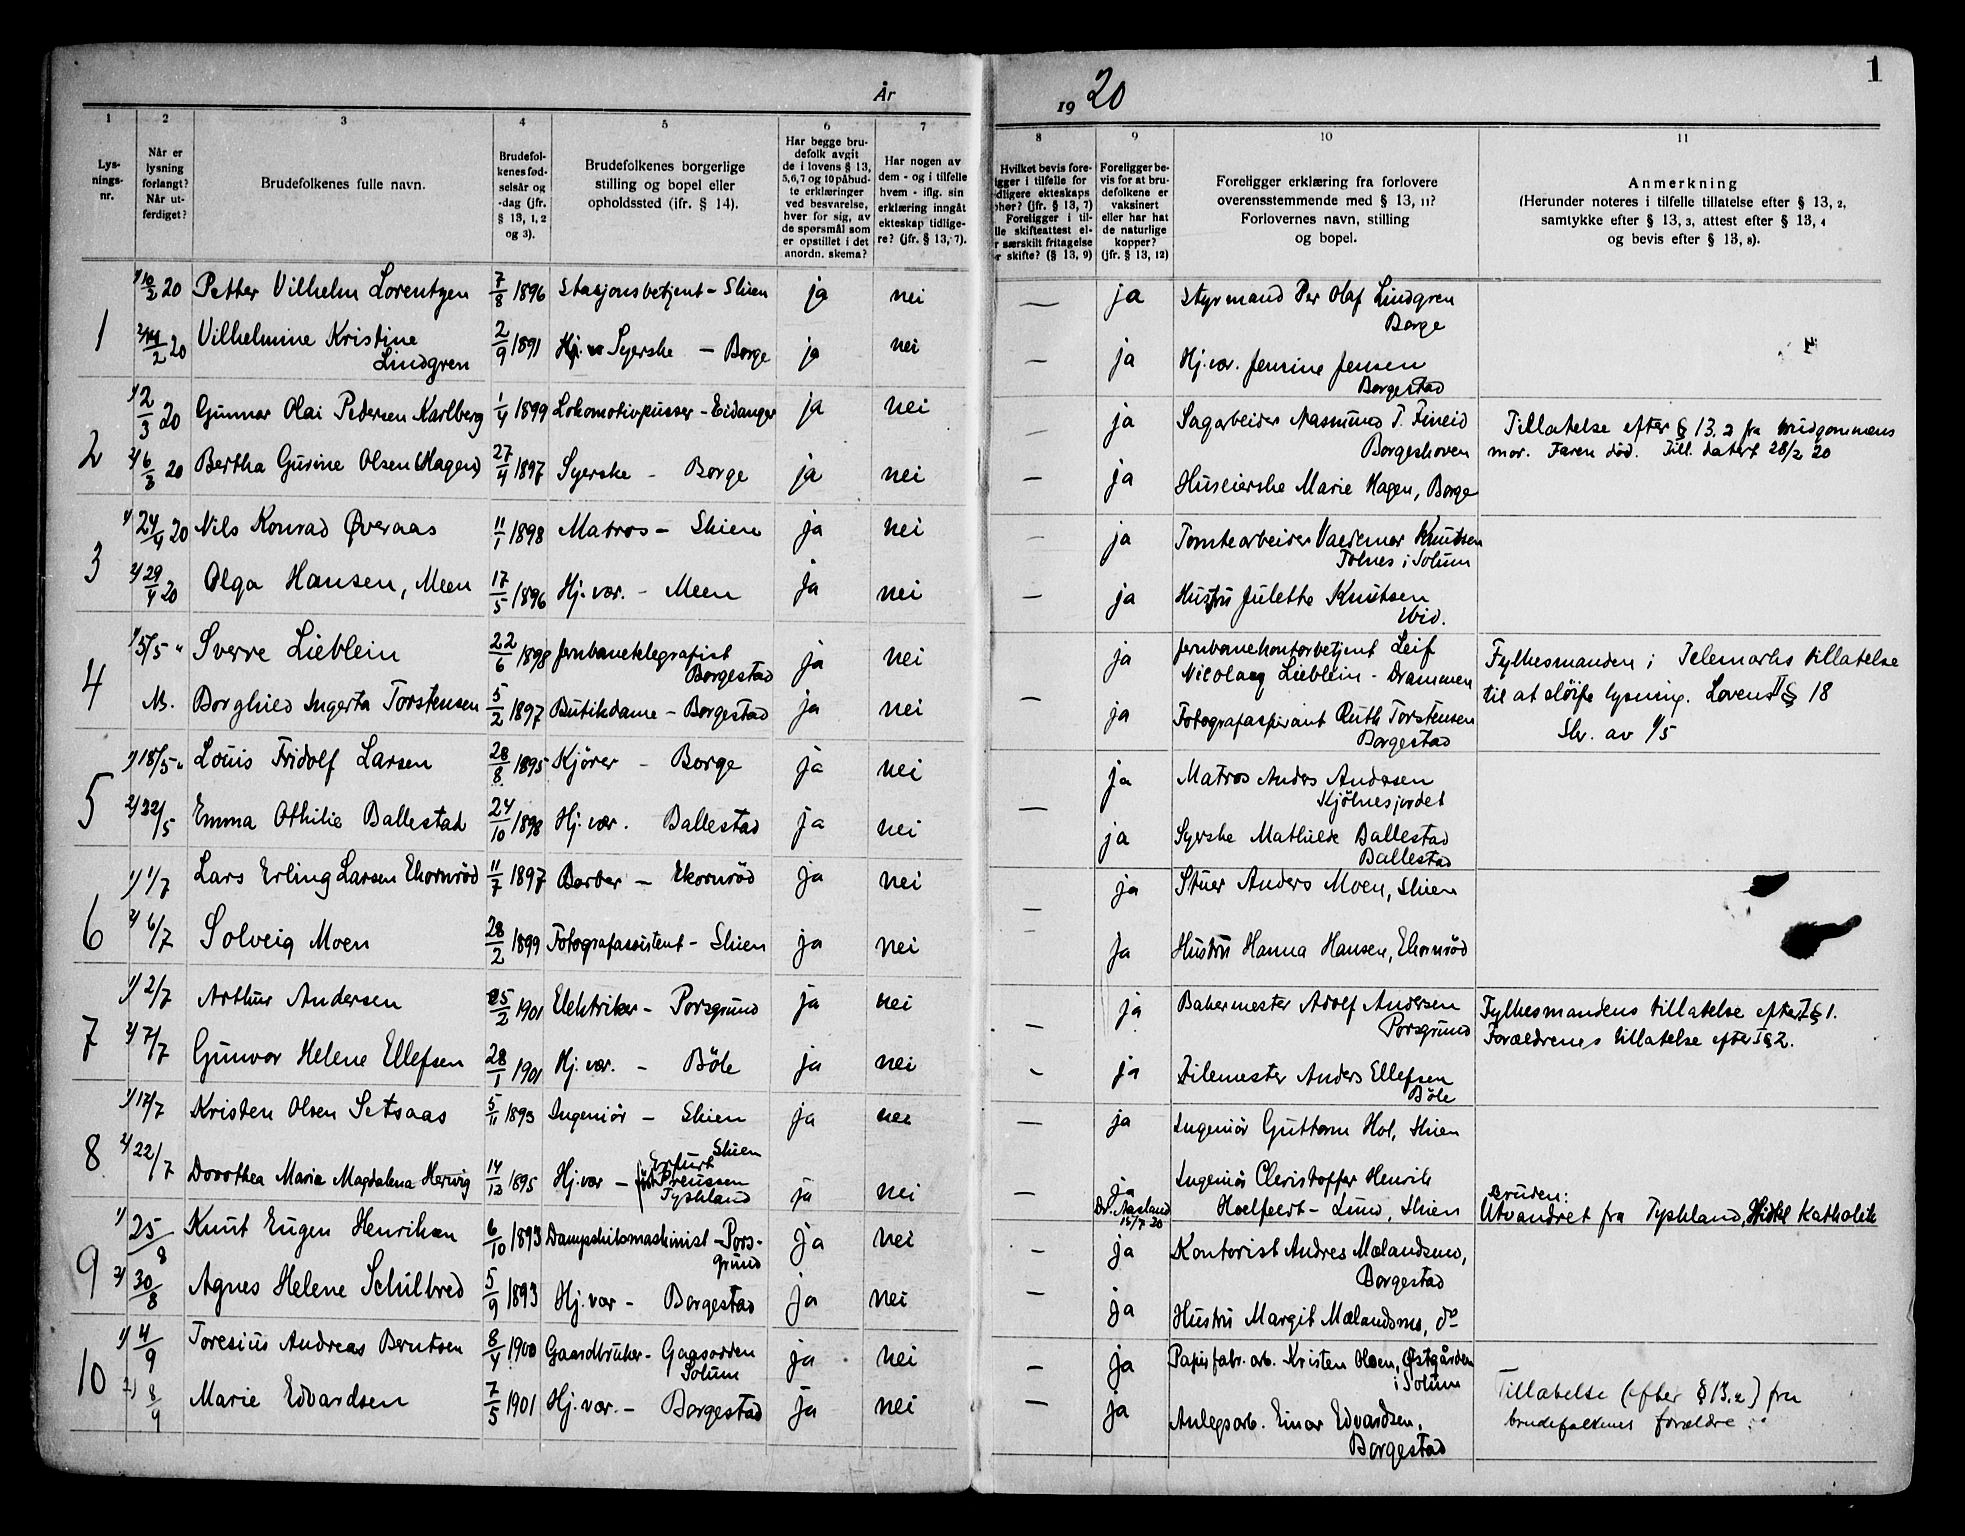 1
År 1920
1
Lys-
nings-
nr.
2
Når er
lysning
forlangt?
Når ut-
ferdiget?
3
Brudefolkenes fulle navn.
4
Brudefol-
kenes fød-
selsår og
-dag (jfr.
§ 13, 1, 2
og 3).
5
Brudefolkenes borgerlige
stilling og bopel eller
opholdssted (ifr. § 14).
6
Har begge bru-
defolk avgit
de i lovens § 13,
5,6,7 og 10 påbud-
te erklæringer
ved besvarelse,
hver for sig, av
de spørsmål som
er opstillet i det
anordn. skema?
7
Har nogen av
dem - og i tilfelle
hvem - iflg. sin
erklæring inngått
ekteskap tidlige-
re? (jfr. § 13, 7).
8
Hvilket bevis fore-
igger i tilfelle for
idligere ekteskaps
phør? (jfr. § 13, 7)
Foreligger i til-
lle skifteattest el-
r særskilt fritagelse
r skifte? (§ 13, 9)
9
Foreligger be-
vis for at bru-
defolkene er
vaksinert
eller har hat
de naturlige
kopper?
(jfr. § 13, 12)
10
Foreligger erklæring fra forlovere
overensstemmende med § 13, 11?
Forlovernes navn, stilling
og bopel.
11
Anmerkning
(Herunder noteres i tilfelle tillatelse efter § 13, 2,
samtykke efter § 13, 3, attest efter § 13, 4
og bevis efter § 13, 8).
1
1) 10/2 20 Petter Vilhelm Lorentzen 7/8 1896 Stasjonsbetjent - Skien ja nei — ja Styrmand Per Olaf Lindgren
Borge
2) 14/2 20 Vilhelmine Kristine 2/9 1891 Syerske - Borge ja nei — ja Hj.vær. Jensine Jensen
Lindgren
Borgestad
2
1) 2/3 20 Gunnar Olai Pedersen Karlberg 1/4 1899 Lokomotivpusser - Eidanger ja nei — ja Sagarbeider Rasmund T. Fineid
Borgeshoven
Tillatelse efter § 13.2 fra brudgommens
mor. Faren död. Till. datert 28/2 20
2) 6/3 20 Bertha Gurine Olsen (Hagen) 27/4 1897 Syerske - Borge ja nei — ja Huseierske Marie Hagen, Borge
3
1) 24/4 20 Nils Konrad Øveraas 11/1 1898 Matros - Skien ja nei — ja Tomtearbeider Valdemar Knudsen
Tolnes i Solum
2) 29/4 20 Olga Hansen, Meen 17/5 1896 Hj.vær. - Meen ja nei — ja Hustru Julette Knutsen
Ibid.
4
1) 5/5 " Sverre Lieblein 22/6 1898 Jernbanetelegrafist
Borgestad
ja nei ja Jernbanekontorbetjent Leif
Nicolay Lieblein - Drammen
Fylkesmanden i Telemarks tillatelse
til at slöife lysning. Lovens II § 18
Skr. av 1/5
Borghild Ingerta Torstensen 5/2 1897 Butikdame - Borgestad ja nei — ja Fotografaspirant Ruth Torstensen
Borgestad
5
1) 18/5 " Louis Fridolf Larsen 28/8 1895 Kjörer - Borge ja nei ja Matros Anders Andersen
Kjölnesjordet
2) 22/5 Emma Othilie Ballestad 24/10 1898 Hj.vær. Ballestad ja nei — ja Syerske Mathilde Ballestad
Ballestad
6
1) 1/7 Lars Erling Larsen Ekornröd 11/7 1897 Barber - Ekornröd ja nei — ja Stuer Anders Moen, Skien
2) 6/7 Solveig Moen 28/2 1899 Fotografassistent - Skien ja nei — Ja Hustru Hanna Hansen, Ekornröd
7
1) 2/7 Arthur Andersen 25/2 1901 Elektriker - Porsgrund ja nei — ja Bakermester Adolf Andersen
Porsgrund
Fylkesmandens tillatelse efter I § 1.
Forældrenes tillatelse efter I § 2.
2) 7/7 Gunvor Helene Ellefsen 28/1 1901 Hj.vær. - Böle ja nei — ja Dilemester Anders Ellefsen
Böle
8
1) 17/7 Kristen Olsen Setsaas 5/11 1893 Ingeniör - Skien ja nei — ja Ingeniör Guttorm Hol, Skien
2) 22/7 Dorothea Maria Magdalena Herwig 14/12 1895 Hj.vær - Skien
Erfurt
Preussen
Tyskland
ja nei — ja
Dr. Aasland
15/7 20
Ingeniör Christoffer Henrik
Hoelfeert - Lund, Skien
Bruden:
Utvandret fra Tyskland, Katholik
9
1) 25/8 Knut Eugen Henriksen 6/10 1893 Dampskibsmaskinist - Pors-
grund
ja nei — ja Kontorist Andres Mælandsmo,
Borgestad
2) 30/8 Agnes Helene Schilbred 5/9 1893 Hj.vær - Borgestad ja nei — ja Hustru Margit Mælandsmo, do
10
1) 4/9 Toresius Andreas Berntsen 8/4 1900 Gaardbruker - Gaasodden
Solum
ja nei — ja Papirfabr. arb. Kristen Olsen, Østgården
i Solum
Tillatelse (efter § 13.2) fra
brudefolkenes forældre.
2) 8/9 Marie Edvardsen 7/5 1901 Hj.vær. - Borgestad ja nei — ja Anlegsarb. Einar Edvardsen,
Borgestad